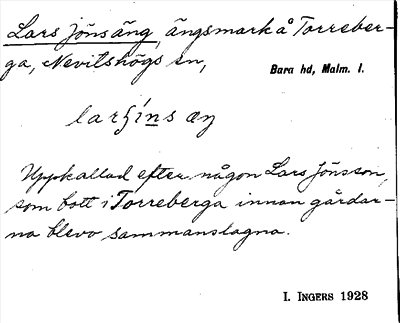 Lars Jönsäng, ängsmark å Torreber-
ga, Nevitshögs sn,
Bara hd, Malm. l.
Uppkallad efter någon Lars Jönsson,
som bott i Torreberga innan gårdar-
na blevo sammanslagna.
I. INGERS 1928